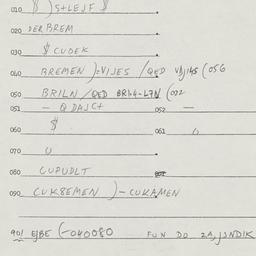 010 $ ) S+LEJF $
020 DERBREM
030 $ CUDEK
040 BREMEN )=VIJES / QED (056
050 BRILN / QED BR14-L7N (022
051 – QDAJC+ 052 —
060 $ 061
070 U
080 CUPUDLT
090 CUK8EMEN ) – CUKAMEN
901 EJBE (-040080 FUN DO 2A,JSNDIK